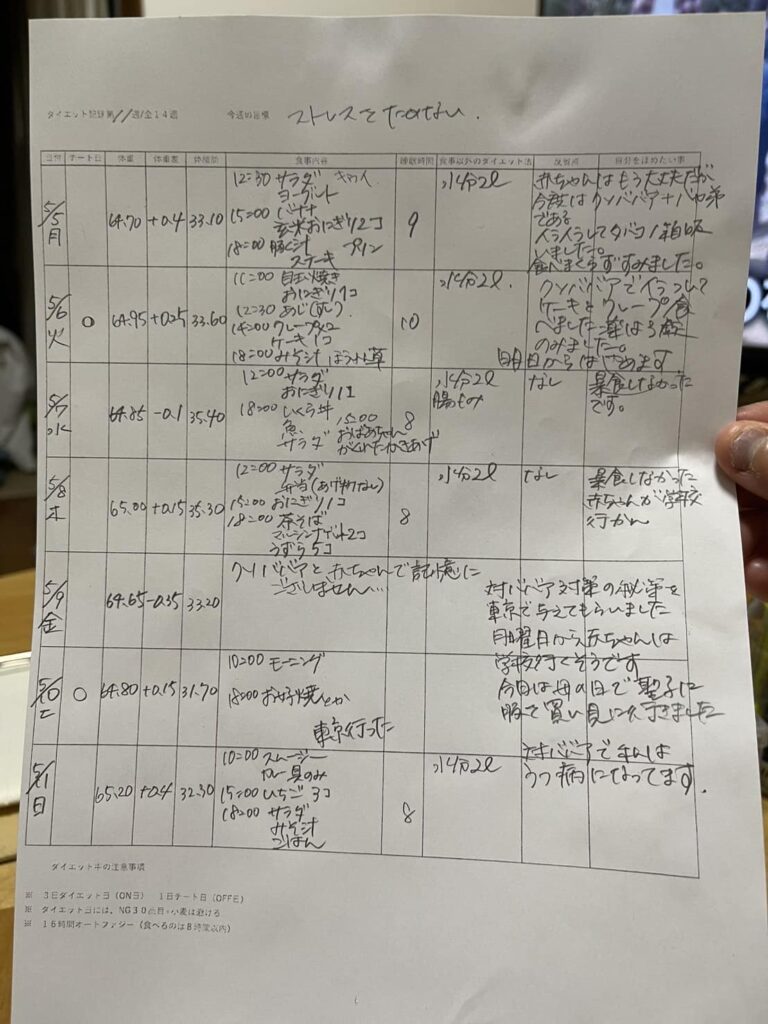 ダイエット記録第11週/全14週 今週の目標 ストレスをためない.
日付 チート日 体重 体重差 体脂肪 食事内容 睡眠時間 食事以外のダイエット法 反省点 自分をほめたい事
5/5 月 64.70 +0.4 33.10
12:30 サラダ
ヨーグルト
15:00 バナナ
玄米おにぎり2コ
18:00 豚汁 プリン
ステーキ
9 水分2l
赤ちゃんはもう大丈夫だが
今度はクソババア+バカ弟
である
イライラしてタバコ1箱
いました。
食べまくらずすみました。
5/6 火 ○ 64.95 +0.25 33.60
11:00 目玉焼き
おにぎり1コ
12:30 あじ
14:00 クレープ×2
ケーキ1コ
18:00 みそ汁 ほうれん草
10 水分2l
クソババアでイライラして
ケーキとクレープ食
べました 薬は3錠
のみました。
明日からはやめます
5/7 水 64.85 -0.1 35.40
12:00 サラダ
おにぎり1
18:00 いくら丼
魚
サラダ
15:00
おばあちゃん
がくれたかきあげ
8 水分2l
腸もみ
なし
暴食しなかった
です。
5/8 木 65.00 +0.15 35.30
12:00 サラダ
弁当(あげ物なし)
15:00 おにぎり1コ
18:00 茶そば
2コ
うずら5コ
8 水分2l なし
暴食しなかった
赤ちゃんが学校
行かん
5/9 金 64.65 -0.35 33.20
クソババアと赤ちゃんで記憶に
ございません…
対ババア対策の秘策を
東京で与えてもらいました
月曜日から赤ちゃんは
学校行くそうです
今日は母の日で聖子に
服を買い見に行きました
5/10 土 ○ 64.80 +0.15 31.70
10:00 モーニング
18:00 お好焼とか
東京行った
5/11 日 65.20 +0.4 32.30
10:00 スムージー
カレー具のみ
15:00 いちご3コ
18:00 サラダ
みそ汁
ごはん
8 水分2l
対ババアで
うつ病になってます.
ダイエット中の注意事項
※ 3日ダイエット日(ON日) 1日チート日(OFF日)
※ ダイエット日には、NG30品目・小麦は避ける
※ 16時間オートファジー(食べるのは8時間以内)